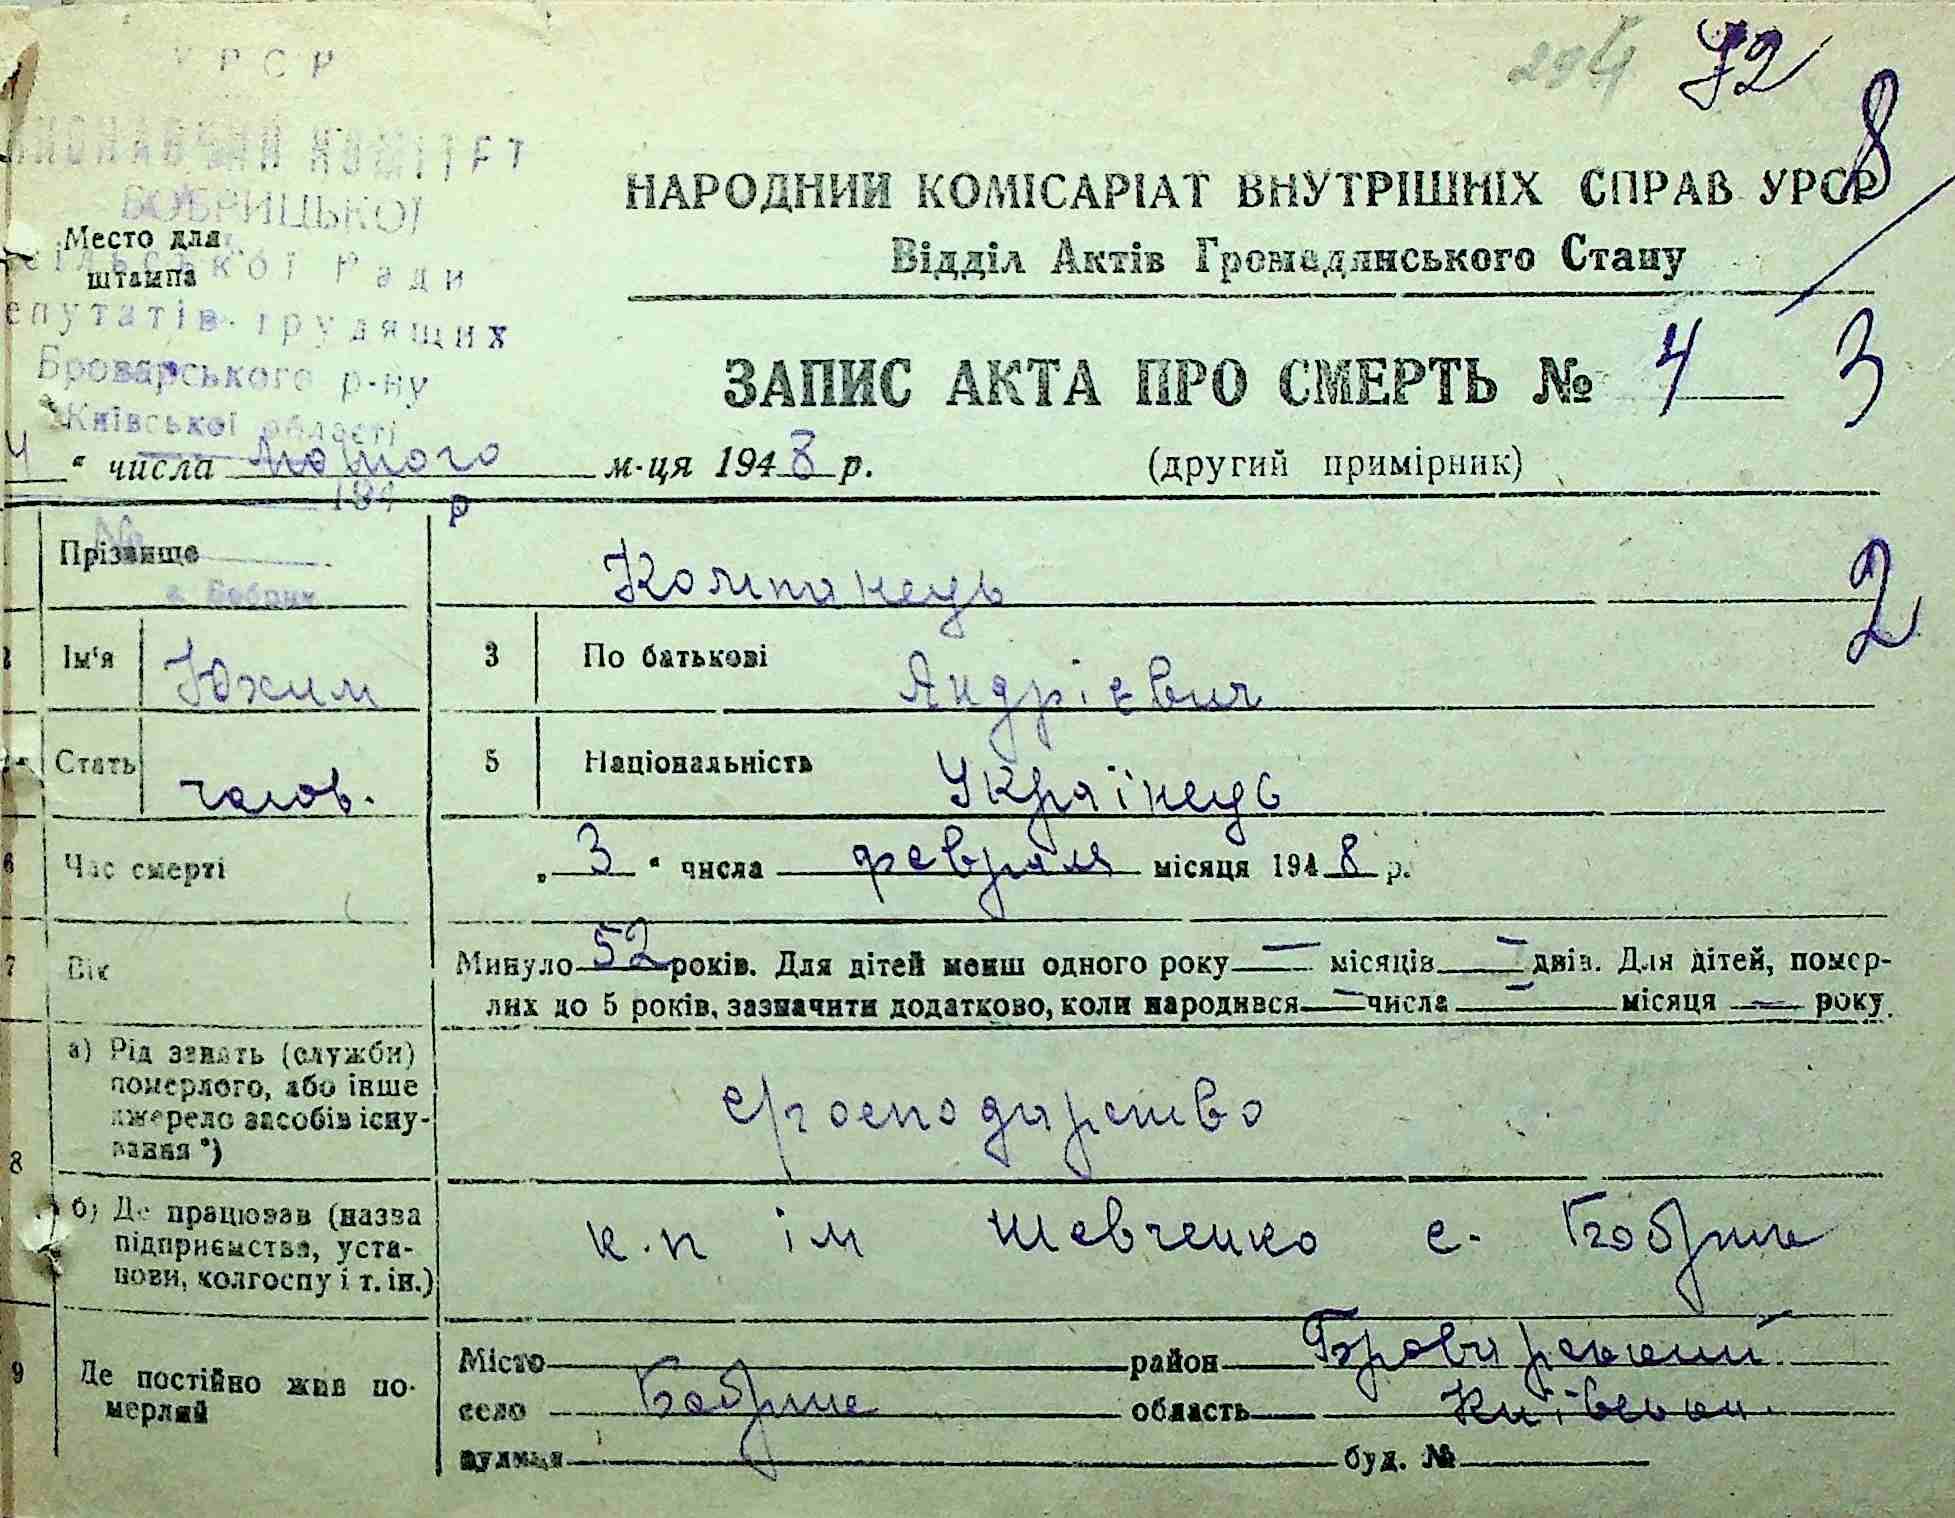 УРСР
ВИКОНАВЧИЙ КОМІТЕТ
БОБРИЦЬКОЇ
сільської Ради
депутатів трудящих
Броварського р-ну
Київської області
194 р
№
с. Бобрик
Место для
штампа
72
8
3
2
НАРОДНИЙ КОМІСАРІАТ ВНУТРІШНІХ СПРАВ УРСР
Відділ Актів Громадянського Стану
ЗАПИС АКТА ПРО СМЕРТЬ № 4
4 " числа лютого м-ця 1948 р.
(другий примірник)
Прізвище
Компанець
Ім'я Юхим
3 По батькові Андрієвич
Стать чолов.
5 Національність Українець
6 Час смерті
„ 3 " числа февраля місяця 1948 р.
7 Вік
Минуло 52 років. Для дітей менш одного року — місяців — днів. Для дітей, помер-
лих до 5 років, зазначити додатково, коли народився — числа — місяця — року.
8 а) Рід занять (служби)
померлого, або інше
джерело засобів існу-
вання *)
с/господарство
б) Де працював (назва
підприємства, уста-
нови, колгоспу і т. ін.)
к.п ім Шевченко с. Бобрик
9 Де постійно жив по-
мерлий
Місто район Броварський
село Бобрик область Київськой
вулиця буд. №